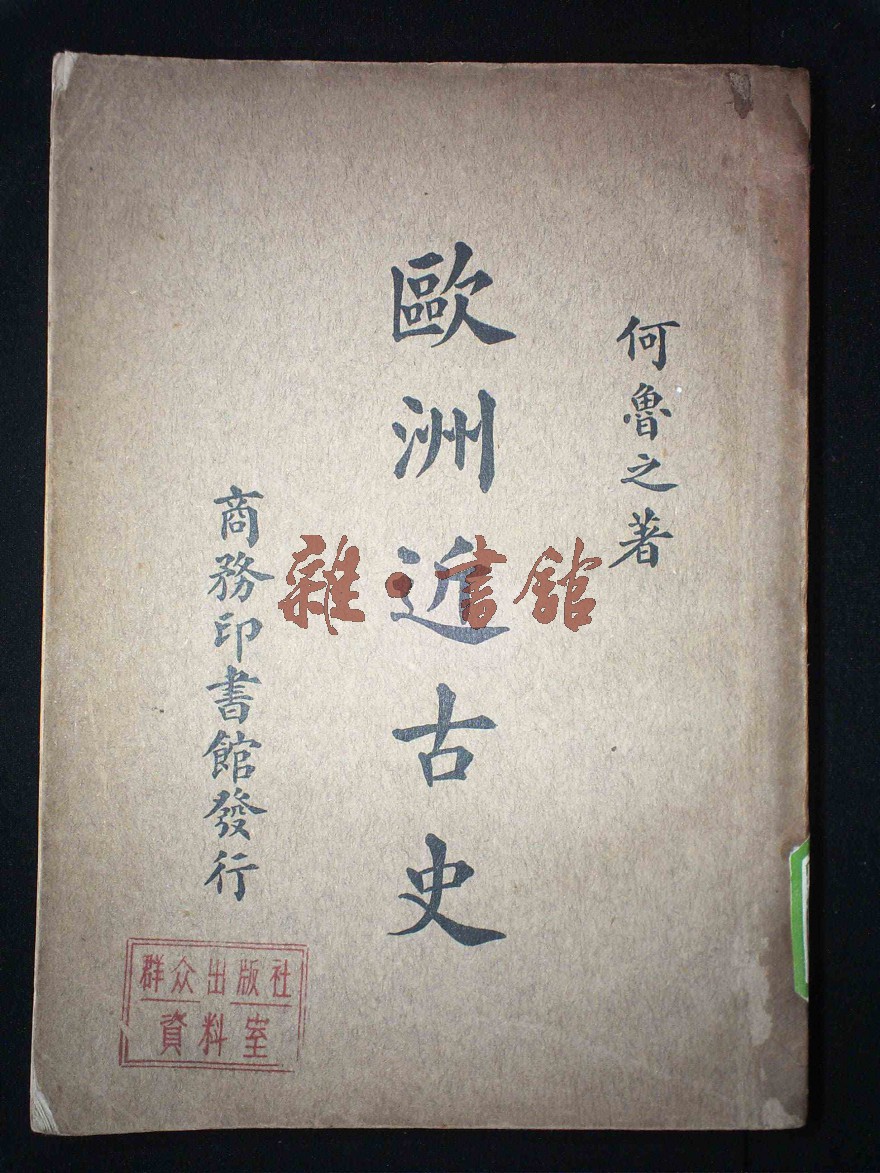 何魯之著
歐洲近古史
商務印書館發行
雜·書館
群众出版社
資料室